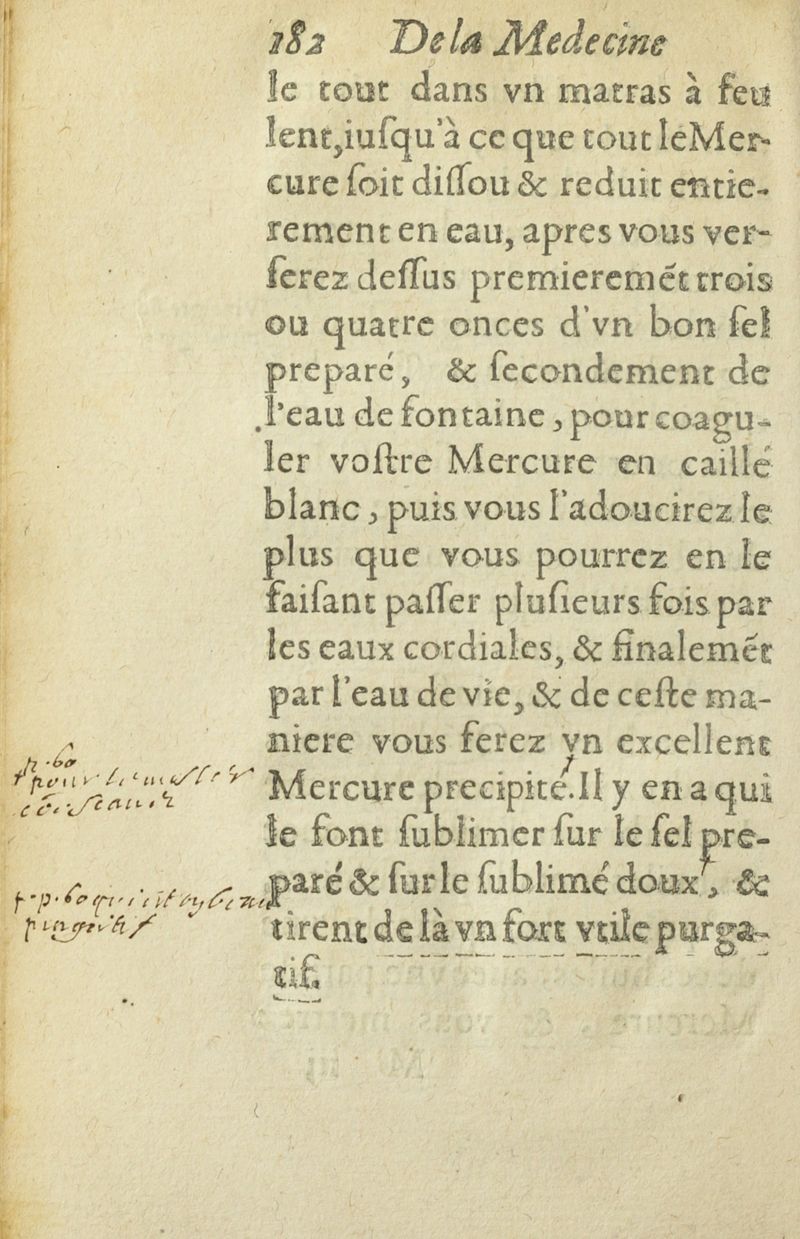 182 De la Medecine
le tout dans vn matras à feu
lent, iuſqu'à ce que tout le Mer-
cure ſoit diſſou & reduit entie-
rement en eau, apres vous ver-
ſerez deſſus premieremẽt trois
ou quatre onces d'vn bon ſel
preparé, & ſecondement de
l'eau de fontaine, pour coagu-
ler voſtre Mercure en caillé
blanc, puis vous l'adoucirez le
plus que vous pourrez en le
faiſant paſſer pluſieurs fois par
les eaux cordiales, & finalemẽt
par l'eau de vie, & de ceſte ma-
niere vous ferez vn excellent
Mercure precipité. Il y en a qui
le font ſublimer ſur le ſel pre-
paré & ſur le ſublimé doux, &
tirent de là vn fort vtile purga-
tif.